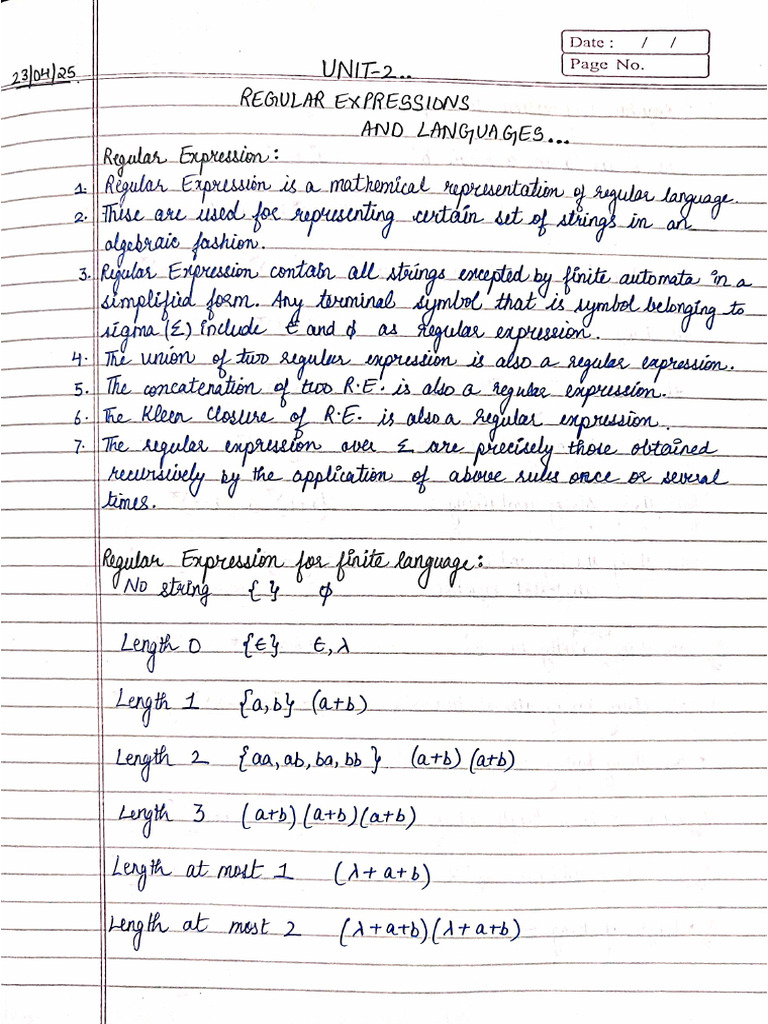 Date : / /
Page No.
23/04/25
UNIT-2..
REGULAR EXPRESSIONS
AND LANGUAGES...
Regular Expression :
1. Regular Expression is a mathemical representation of regular language.
2. These are used for representing certain set of strings in an
algebraic fashion.
3. Regular Expression contain all strings excepted by finite automata in a
simplified form. Any terminal symbol that is symbol belonging to
sigma (Σ) include ϵ and ϕ as regular expression.
4. The union of two regular expression is also a regular expression.
5. The concatenation of two R.E. is also a regular expression.
6. The Kleen Closure of R.E. is also a regular expression.
7. The regular expression over Σ are precisely those obtained
recursively by the application of above rules once or several
times.
Regular Expression for finite language :
No string { } ϕ
Length 0 {ϵ} ϵ, λ
Length 1 {a,b} (a+b)
Length 2 {aa, ab, ba, bb } (a+b) (a+b)
Length 3 (a+b) (a+b) (a+b)
Length at most 1 (λ+ a+b)
Length at most 2 (λ+a+b) (λ+a+b)